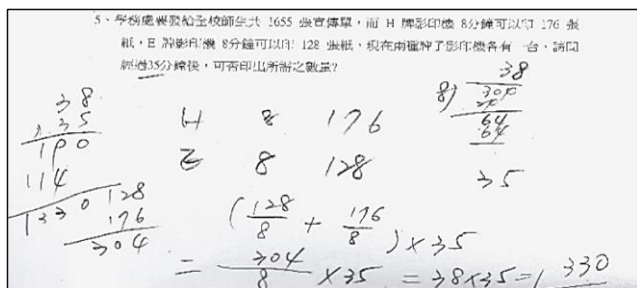 5、學務處要發給全校師生共 1655 張宣傳單，而 H 牌影印機 8分鐘可以印 176 張
紙，E 牌影印機 8分鐘可以印 128 張紙，現在兩種牌子影印機各有一台，請問
經過35分鐘後，可否印出所需之數量?
38
35
190
114
1330
128
176
304
H 8 176
E 8 128
38
8) 304
24
64
64
35
(128/8 + 176/8) × 35
= 304/8 × 35 = 38×35=1330